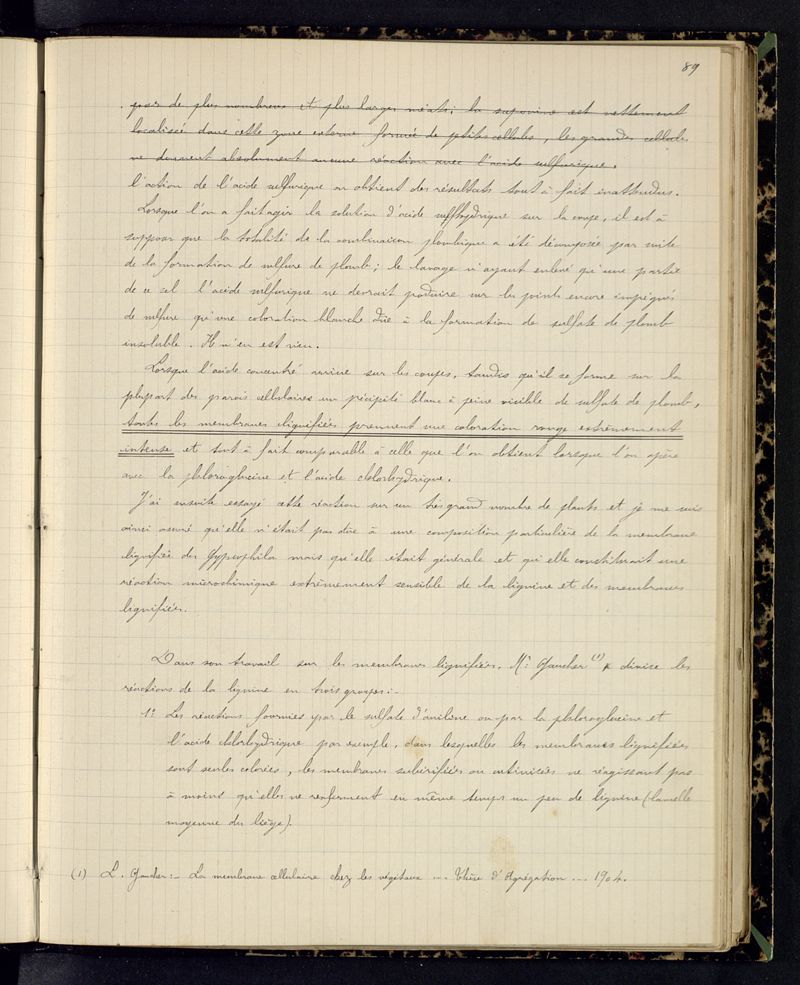 89
par de plus nombreux et plus larges méats ; la saponine est nettement
localisée dans cette zone externe formée de petites cellules, les grandes cellules
ne donnent absolument aucune réaction avec l'acide sulfurique.
l'action de l'acide sulfurique on obtient des résultats tout à fait inattendus.
Lorsque l'on a fait agir la solution d'acide sulfhydrique sur la coupe, il est à
supposer que la totalité de la combinaison plombique a été décomposée par suite
de la formation de sulfure de plomb ; le lavage n'ayant enlevé qu'une partie
de ce sel l'acide sulfurique ne devrait produire sur les points encore imprégnés
de sulfure qu'une coloration blanche dûe à la formation de sulfate de plomb
insoluble. Il n'en est rien.
Lorsque l'acide concentré arrive sur les coupes, tandis qu'il se forme sur la
plupart des parois cellulaires un précipité blanc à peine visible de sulfate de plomb,
toutes les membranes lignifiées prennent une coloration rouge extrêmement
intense et tout à fait comparable à celle que l'on obtient lorsque l'on opère
avec la phloroglucine et l'acide chlorhydrique.
J'ai ensuite essayé cette réaction sur un très grand nombre de plantes et je me suis
ainsi assuré qu'elle n'était pas dûe à une composition particulière de la membrane
lignifiée des Gypsophila mais qu'elle était générale et qu'elle constituait une
réaction microchimique extrêmement sensible de la lignine et des membranes
lignifiées.
Dans son travail sur les membranes lignifiées, Mr Gaucher (1) divise les
réactions de la lignine en trois groupes :-
1º Les réactions fournies par le sulfate d'aniline ou par la phloroglucine et
l'acide chlorhydrique par exemple, dans lesquelles les membranes lignifiées
sont seules colorées, les membranes subérifiées ou cutinisées ne réagissant pas
à moins qu'elles ne renferment en même temps un peu de lignine (lamelle
moyenne du liège).
(1) L. Gaucher :- La membrane cellulaire chez les végétaux ... Thèse d'Agrégation ... 1904.